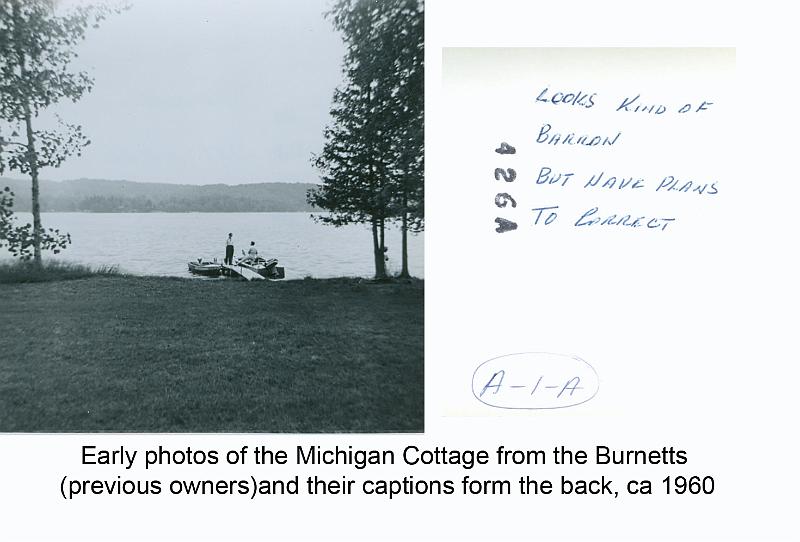 LOOKS KIND OF
BARRON
BUT HAVE PLANS
TO CORRECT
426A
A-1-A
Early photos of the Michigan Cottage from the Burnetts
(previous owners)and their captions form the back, ca 1960